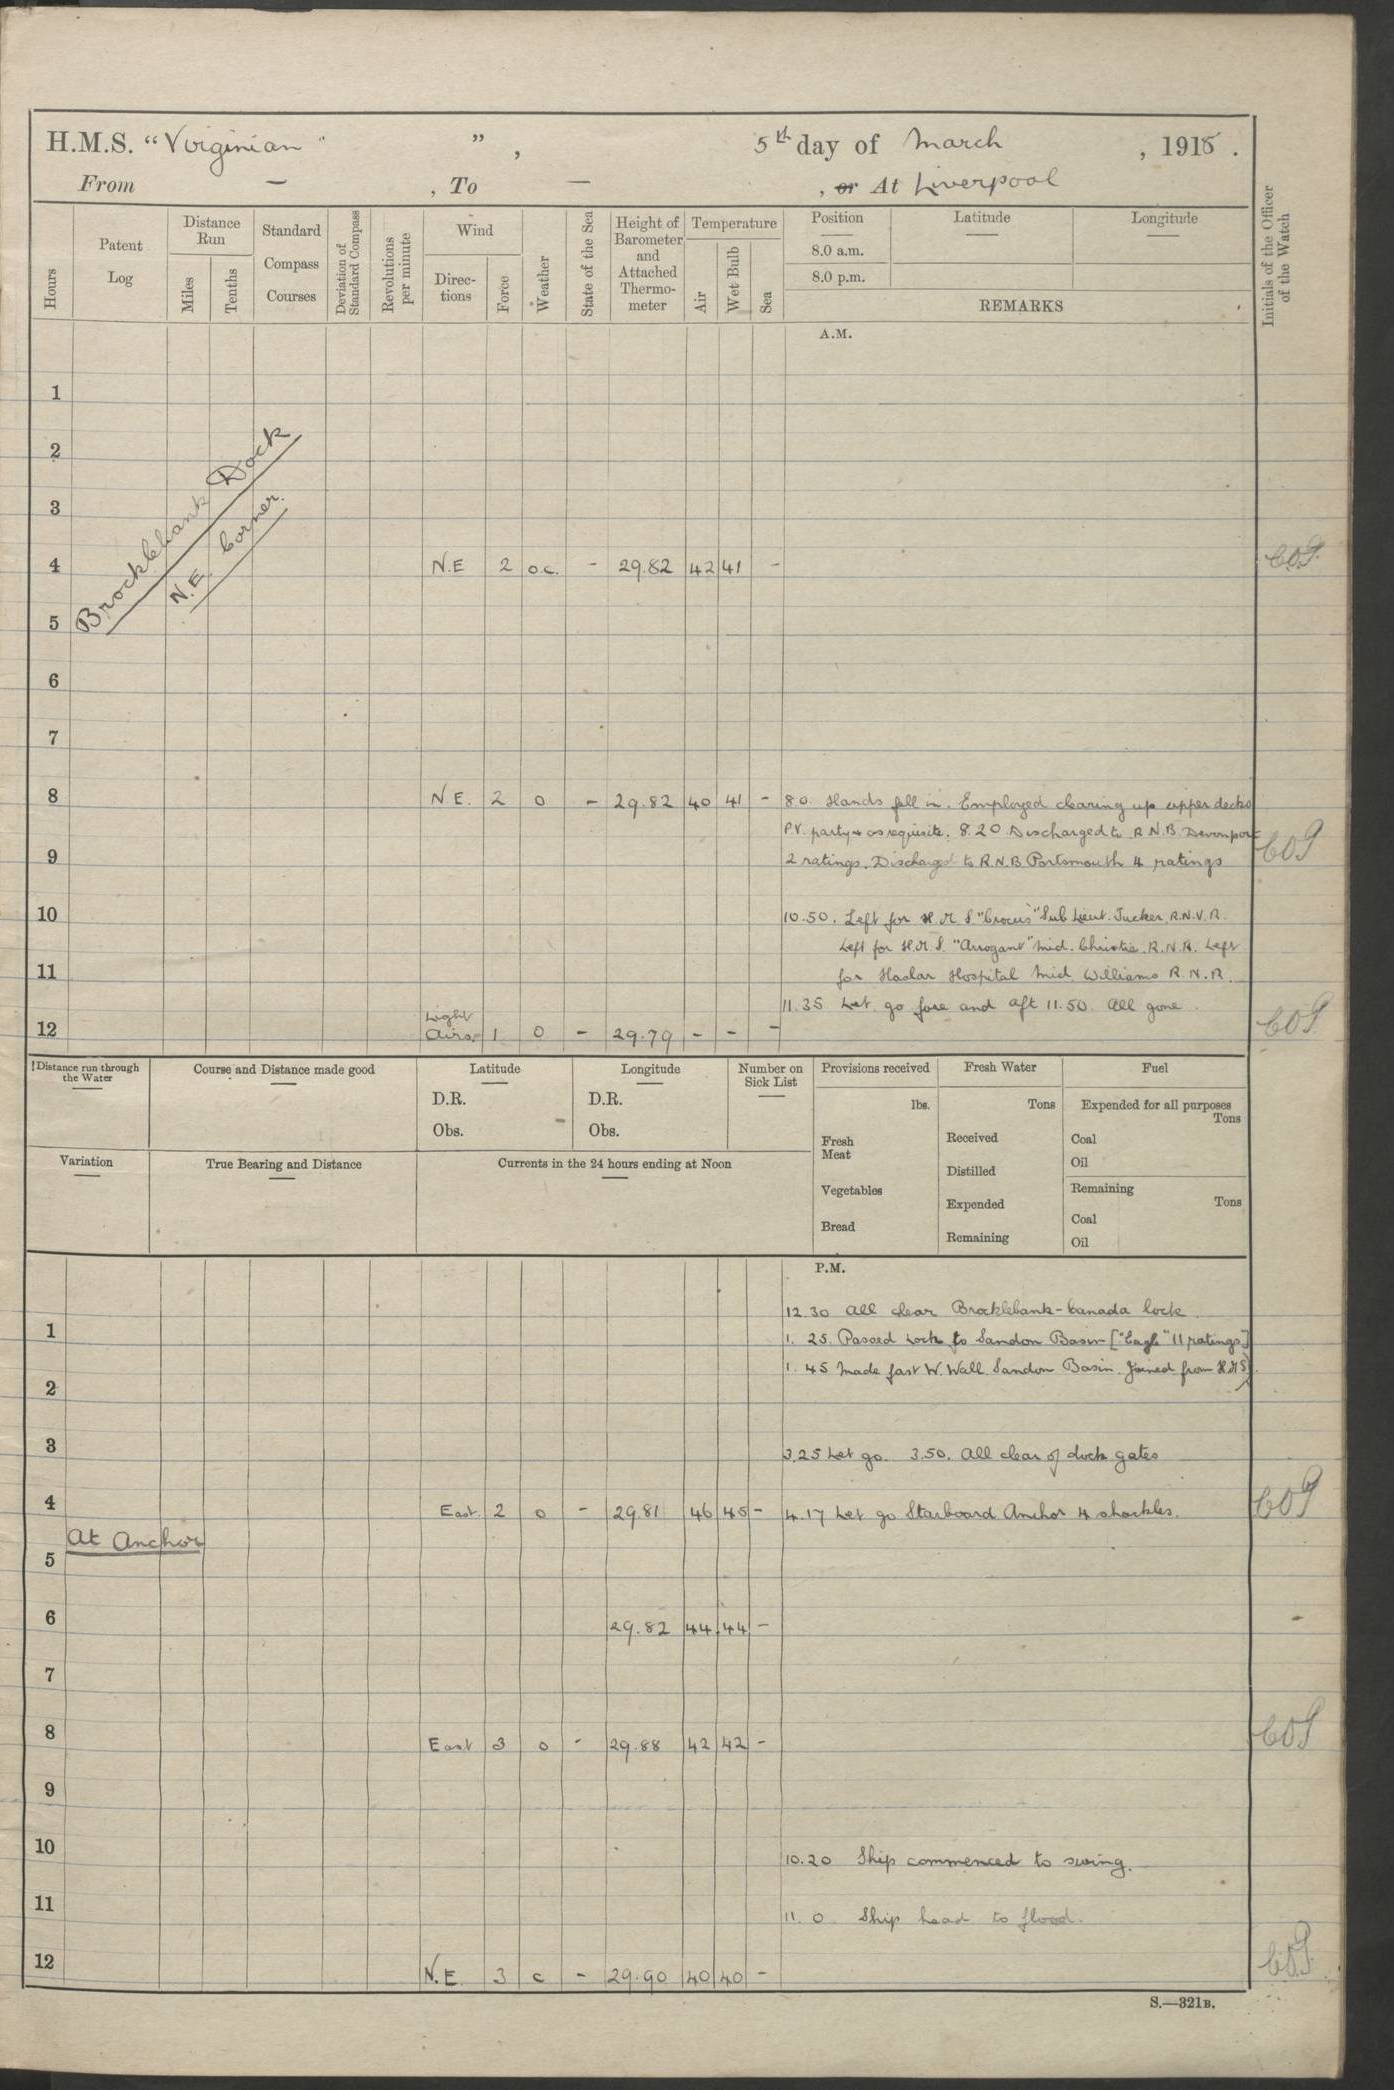 H.M.S. "Virginian" ", 5th day of March, 1915.
From — , To — , or At Liverpool
Hours
Patent Log
Distance Run
Miles
Tenths
Standard Compass Courses
Deviation of Standard Compass
Revolutions per minute
Wind
Directions
Force
Weather
State of the Sea
Height of Barometer and Attached Thermometer
Temperature
Air
Wet Bulb
Sea
Position
8.0 a.m.
8.0 p.m.
Latitude
Longitude
REMARKS
Initials of the Officer of the Watch
A.M.
1
2
3
Brocklebank Dock
N.E. Corner.
4 N.E 2 o.c. - 29.82 42 41 -
5
6
7
8 N.E. 2 o - 29.82 40 41 - 8.0. Hands fell in. Employed clearing up upper decks
P.V. party & as requisite. 8.20 Discharged to R.N.B. Devonport
9 2 ratings. Discharged to R.N.B Portsmouth 4 ratings
10 10.50. Left for H.M.S "Crocus" Sub Lieut. Tucker R.N.V.R.
Left for H.M.S. "Arrogant" Mid. Christie. R.N.R. Left
11 for Haslar Hospital Mid. Williams R.N.R.
11.35 Let go fore and aft 11.50. All gone.
12 Light Airs. 1 o - 29.79 - - -
Distance run through the Water
Course and Distance made good
Latitude
D.R.
Obs.
Longitude
D.R.
Obs.
Number on Sick List
Provisions received
lbs.
Fresh Meat
Vegetables
Bread
Fresh Water
Tons
Received
Distilled
Expended
Remaining
Fuel
Expended for all purposes
Tons
Coal
Oil
Remaining
Tons
Coal
Oil
Variation
True Bearing and Distance
Currents in the 24 hours ending at Noon
P.M.
12.30 All clear Brocklebank-Canada lock.
1 1.25. Passed Lock to Sandon Basin ["Eagle" 11 ratings]
1.45 Made fast W. Wall Sandon Basin. Joined from H.M.S
2
3 3.25 Let go. 3.50. All clear of dock gates
4 East. 2 o - 29.81 46 45 - 4.17 Let go Starboard Anchor 4 shackles.
At Anchor
5
6 29.82 44 44 -
7
8 East 3 o - 29.88 42 42 -
9
10 10.20 Ship commenced to swing.
11 11.0 Ship head to flood.
12 N.E. 3 c - 29.90 40 40 -
S.—321B.